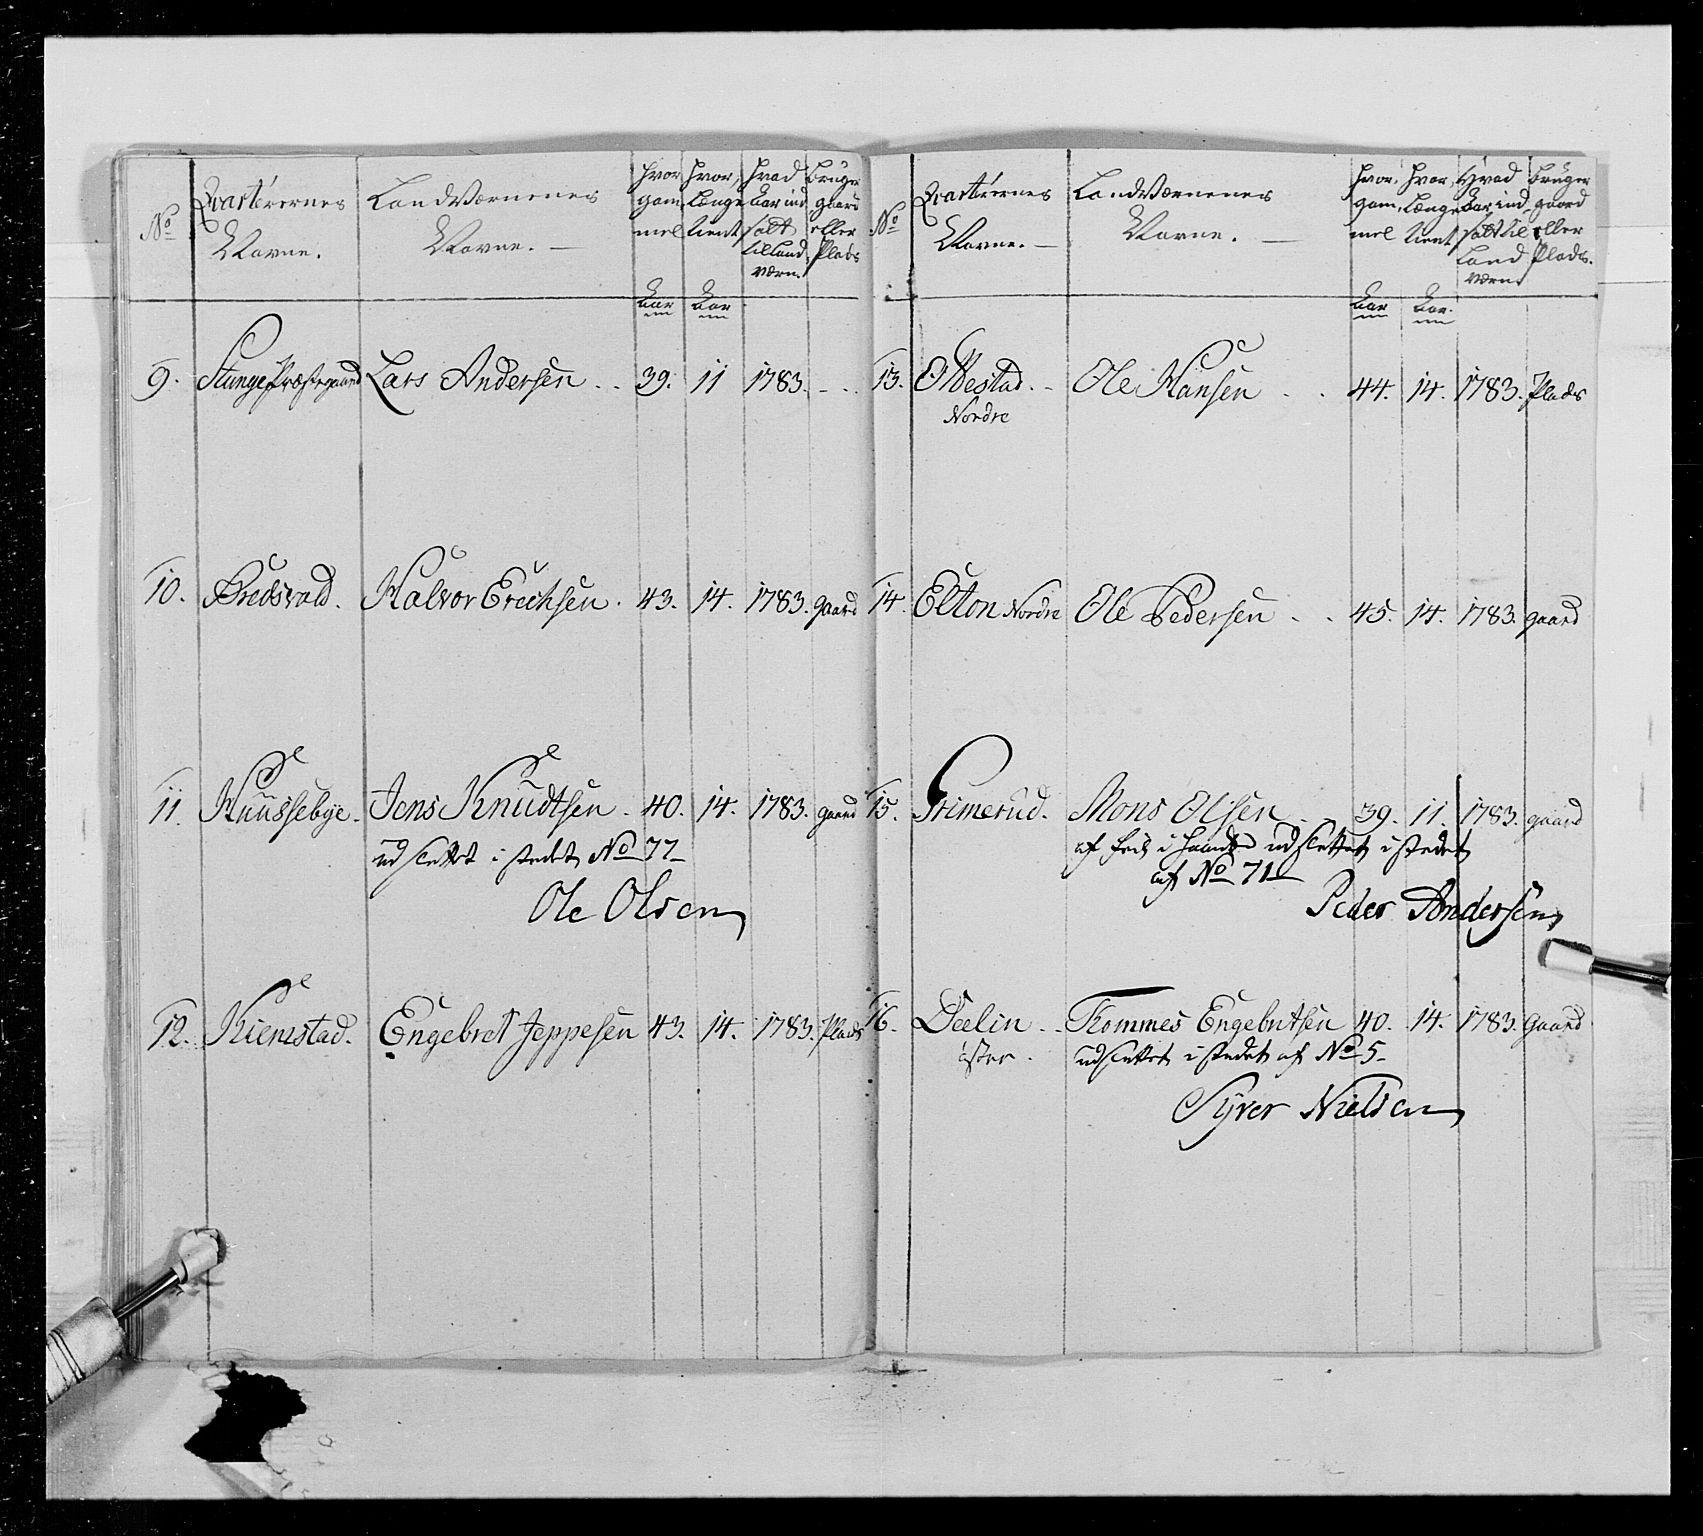 No
Qvarterernes
Navne.
Landværnenes
Navne. —
hvor
gam,
mel
Aar
hvor,
længe
tient
Aar
hvad
Aar ind
satt
til Land
værn.
bruger
gaard
eller
Plads
9. Stange Præstegaard Lars Andersen . . 39. 11 1783. - .
10. Bredsvold. Halvor Erichsen. 43. 14. 1783. gaard
11. Huussebye. Jens Knudtsen. 40. 14. 1783. gaard
udslettet i stedet No 77
Ole Olsen
12. Kiemstad. Engebret Jeppesen 43. 14. 1783. Plads
No
Qvarterernes
Navne. —
Landværnenes
Navne. —
hvor,
gam,
mel
Aar
hvor,
længe
tient
Aar.
Hvad
Aar ind
satt til
Land
værn
bruger
gaard
eller
Plads.
13. Ollestad. - Ole Hansen . . 44. 14. 1783. Plads
Nordre
14. Elton Nordre Ole Pedersen . . 45. 14. 1783. gaard
15. Grimerud. Mons Olsen . 39. 11. 1783. gaard
af udslettet i stedet
af No 71
Peder Andersen
16. Deelin . . Thommes Engebretsen 40. 14. 1783. Gaard
øster. udslettet i stedet af No 5
Syver Nielsen